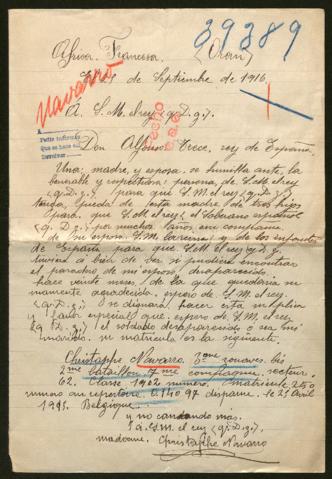 39389
Africa. Francesa. (Oran)
de Septiembre de 1916
Navarro
A. S. M. el rey (q. D. g.)
Don Alfonso Trece, rey de España.
Una; madre, y esposa, se humilla ante, la
venerable y respetuosa: persona, de S. M. el rey
(q. D. g.) para que S. M. el rey (q. D. g.)
tenga, de esta madre de tres hijos
para, que S. M. el rey, el Soberano español
(q. D. g.) por muchos años, en compañia
de su esposa S. M. la reina, y de los infantes
de España para que S. M. el rey (q. D. g.)
tuviera á bien de ver si pudiera encontrar
el paradero de mi esposo, desaparecido,
hace veinte meses, de la que quedaria su
mamente agradecida, espero de S. M. el rey
(q. D. g.) se dignará, hacer esta suplica
y favor especial que, espero de S. M. el rey
(q. D. g.) el soldado desaparecido ó sea mi
marido. su matricula es la siguiente.
Christophe Navarro, 3eme zouaves. bis
2me bataillon 7me compagnie. secteur.
62. Classe, 1902 numero, matricule 250
numero au repertoire 0.140 97 disparue. le 25 Avril
1915. Belgique.
y no cansando más.
á S. M. el rey (q. D. g.)
madame. Christophe Navarro